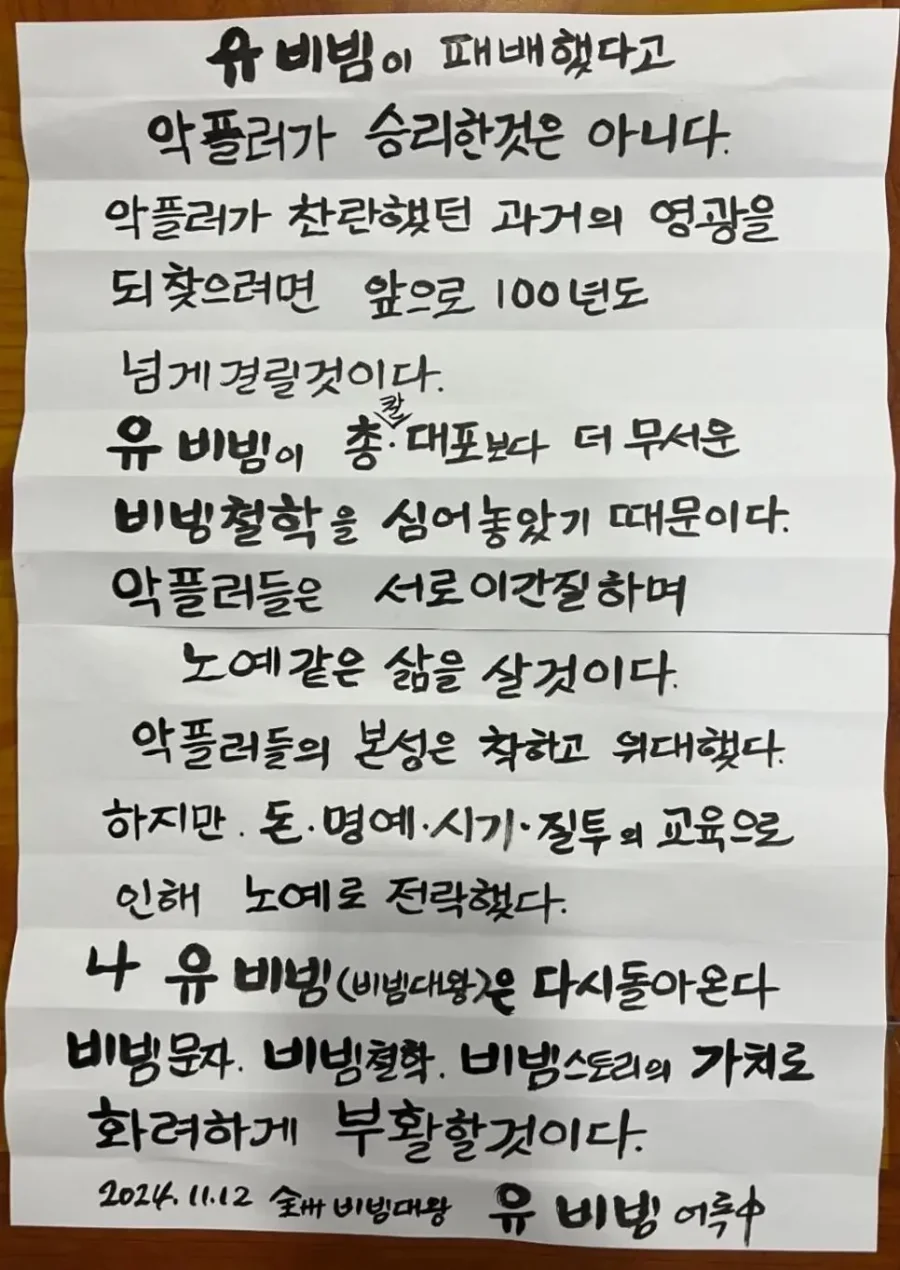 유 비빔이 패배했다고
악플러가 승리한것은 아니다.
악플러가 찬란했던 과거의 영광을
되찾으려면 앞으로 100년도
넘게걸릴것이다.
유 비빔이 총·칼 대포보다 더 무서운
비빔철학을 심어놓았기 때문이다.
악플러들은 서로이간질하며
노예같은 삶을 살것이다.
악플러들의 본성은 착하고 위대했다.
하지만. 돈·명예·시기·질투의 교육으로
인해 노예로 전락했다.
나 유 비빔(비빔대왕)은 다시돌아온다
비빔문자. 비빔철학. 비빔스토리의 가치로
화려하게 부활할것이다.
2024.11.12 全州 비빔대왕 유 비빔